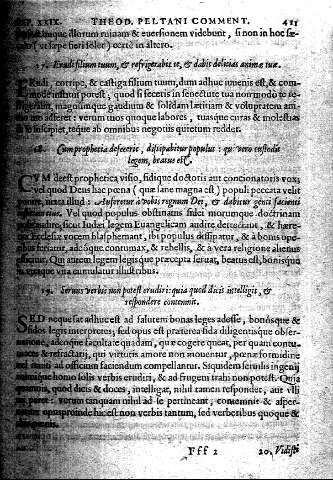 XXIX. THEOD. PELTANI COMMENT. 411
illorum ruinam & euersionem videbunt, si non in hoc sæ-
culo (vt sæpe fieri solet) certè in altero.
17. Erudi filium tuum, & refrigerabit te, & dabit delicias animæ tuæ.
ERudi, corripe, & castiga filium tuum, dum adhuc iuuenis est, & com-
modè institui potest, quod si feceris in senectute tua non modo te re-
frigerabit, magnumque gaudium & solidam lætitiam & voluptatem ani-
mo adferet: verum tuos quoque labores, tuasque curas & molestias
suscipiet, teque ab omnibus negotiis quietum reddet.
18. Cum prophetia defecerit, dissipabitur populus: qui vero custodit
legem, beatus est.
CVM deest prophetica visio, fidique doctoris aut concionatoris vox,
vel quod Deus hac pœna (quæ sane magna est) populi peccata velit
punire, iuxta illud: Auferetur à vobis regnum Dei, & dabitur genti facienti
Vel quod populus obstinatus fidei morumque doctrinam
sicut Iudæi legem Euangelicam audire detrectant, & hære-
veram vocem blasphemant, ibi populus dissipatur, & à bonis ope-
adeoque contumax, & rebellis, & à vera religione alienus
Qui autem legem legisque præcepta seruat, beatus est, bonisque
in vitaque vita cumulatur illustribus.
19. Seruus verbis non potest erudiri: quia quod dicis intelligit, &
respondere contemnit.
SED neque sat adhuc est ad salutem bonas leges adesse, bonosque &
fidos legis interpretes, sed opus est præterea fida diligentique obser-
uatione, adeoque facultate quadam, quæ cogere queat, per quam contu-
maces & refractarij, qui virtutis amore non mouentur, pœnæ formidine
ad officium faciendum compellantur. Siquidem seruilis ingenij
homo solis verbis erudiri, & ad frugem trahi non potest. Quia
quod dicis & doces, intelligat, nihil tamen respondet, aut vlli
paret: verum tanquam nihil ad se pertineant, contemnit & asper-
hic est non verbis tantum, sed verberibus quoque &
Fff 2 20. Vidisti